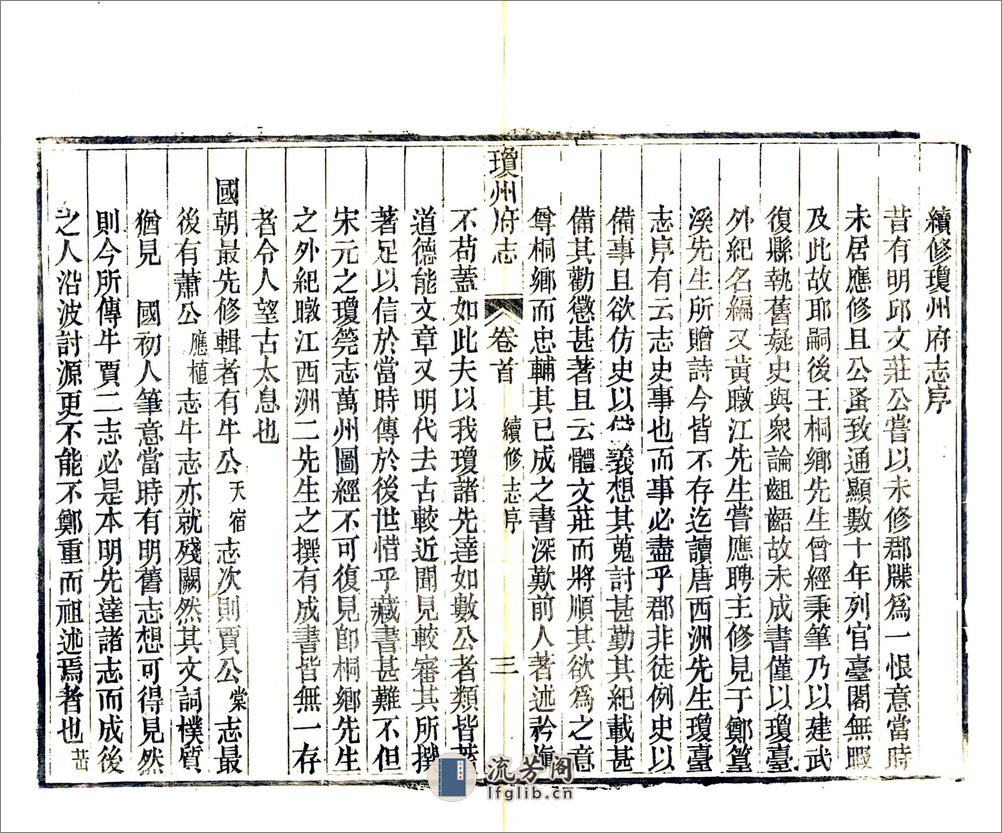 續修瓊州府志序
昔有明邱文莊公嘗以未修郡牒爲一恨意當時
未居應修且公蚤致通顯數十年列官臺閣無暇
及此故耶嗣後王桐鄉先生曾經秉筆乃以建武
復縣執舊疑史與衆論齟齬故未成書僅以瓊臺
外紀名編又黃暾江先生嘗應聘主修見于鄭篁
溪先生所贈詩今皆不存迄讀唐西洲先生瓊臺
志序有云志史事也而事必盡乎郡非徒例史以
備事且欲仿史以備義想其蒐討甚勤其紀載甚
備其勸懲甚著且云體文莊而將順其欲爲之意
尊桐鄉而忠輔其已成之書深歎前人著述矜慎
瓊州府志 卷首 續修志序 三
不苟蓋如此夫以我瓊諸先達如數公者類皆著
道德能文章又明代去古較近聞見較審其所撰
著足以信於當時傳於後世惜乎藏書甚難不但
宋元之瓊筦志萬州圖經不可復見卽桐鄉先生
之外紀暾江西洲二先生之撰有成書皆無一存
者令人望古太息也
國朝最先修輯者有牛公天宿志次則賈公棠志最
後有蕭公應植志牛志亦就殘闕然其文詞樸質
猶見 國初人筆意當時有明舊志想可得見然
則今所傳牛賈二志必是本明先達諸志而成後
之人沿波討源更不能不鄭重而祖述焉者也
流芳閣
lfglib.cn